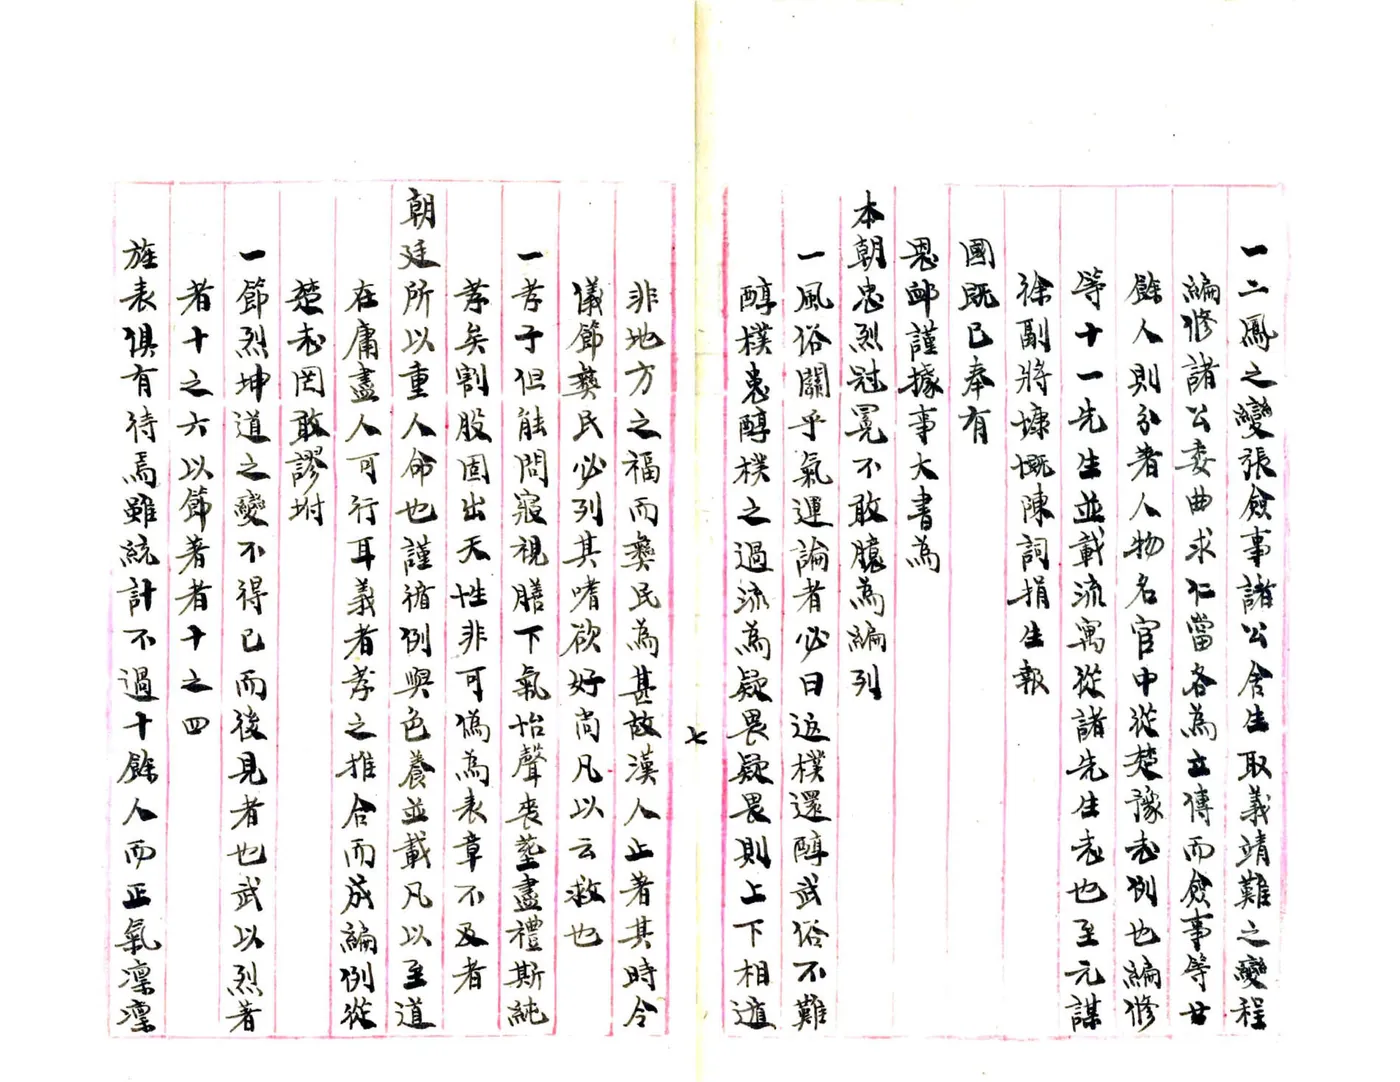 一二鳳之變張僉事諸公舍生取義靖難之變程
編修諸公委曲求仁當各為立傳而僉事等廿
餘人則分者人物名宦中從楚豫志例也編修
等十一先生並載流寓從諸先生志也至元謀
徐副將慷慨陳詞捐生報
國既已奉有
恩卹謹據事大書為
本朝忠烈冠冕不敢臆為編列
一風俗關乎氣運論者必曰返樸還醇武俗不難
醇樸患醇樸之過流為疑畏疑畏則上下相遁
七
非地方之福而彝民為甚故漢人止著其時令
儀節彝民必列其嗜欲好尚凡以云救也
一孝子但能問寢視膳下氣怡聲喪塟盡禮斯純
孝矣割股固出天性非可偽為表章不及者
朝廷所以重人命也謹循例與色養並載凡以至道
在庸盡人可行耳義者孝之推合而成編例從
楚志罔敢謬坿
一節烈坤道之變不得已而後見者也武以烈著
者十之六以節著者十之四
旌表俱有待焉雖統計不過十餘人而正氣凜凜